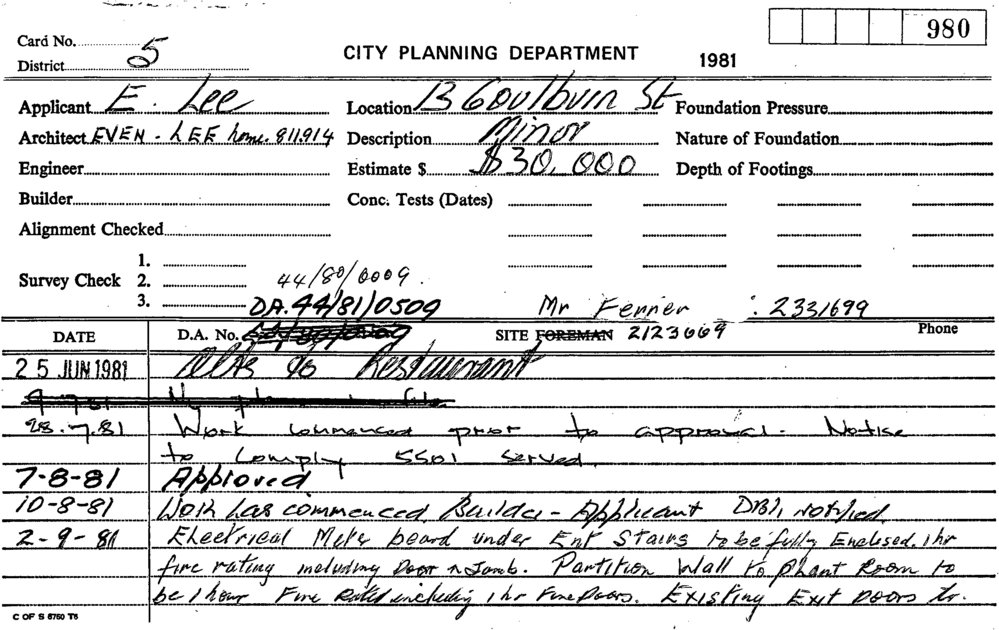 980
Card No. 5
District
CITY PLANNING DEPARTMENT 1981
Applicant E. Lee Location 13 Goulburn St Foundation Pressure
Architect EVEN - LEE home. 811.914 Description Minor Nature of Foundation
Engineer Estimate $ $30,000 Depth of Footings
Builder Conc. Tests (Dates)
Alignment Checked
1.
Survey Check 2. 44/80/0009.
3. DA. 44/81/0509 Mr Ferrier : 2331699
DATE D.A. No. SITE FOREMAN 2123669 Phone
25 JUN 1981 Alts to Restaurant
28.7.81 Work commenced prior to approval. Notice
to comply 5501 served.
7-8-81 Approved
10-8-81 Work has commenced. Builder - Applicant DBI, notified.
2-9-81 Electrical Meter board under Ent Stairs to be fully Enclosed. 1 hr
fire rating including Door & Jamb. Partition Wall to Plant Room to
be 1 hour Fire Rated including 1 hr Fire Doors. Existing Exit Doors to.
C OF S 6750 T6